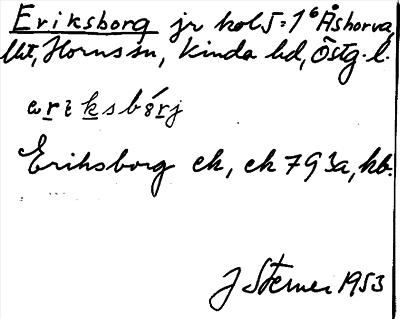 Eriksborg jr kol 5:1⁶ Åshorva,
Ut, Horns sn, Kinda hd, Östg. l.
eriksbórj
Eriksborg ek, ek 7 9 3a, kb.
J Sterner 1953